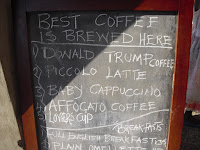 BEST COFFEE
IS BREWED HERE
1) DONALD TRUMP COFFEE
2) PICCOLO LATTE
3) BABY CAPPUCCINO
4) AFFOCATO COFFEE
5) LOVERS CUP
BREAKFASTS
FULL ENGLISH BREAKFAST
PLAIN OMELETTE